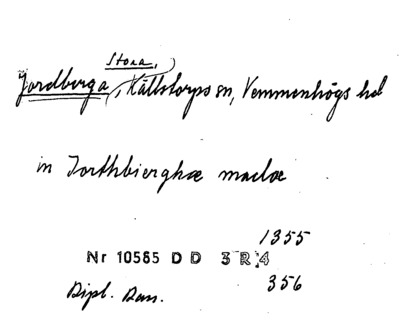 Stora,
Jordberga, Källstorps sn, Vemmenhögs hd
in Jorthbierghæ maclæ
1355
Nr 10585 DD 3 R 4
Dipl. Dan. 356